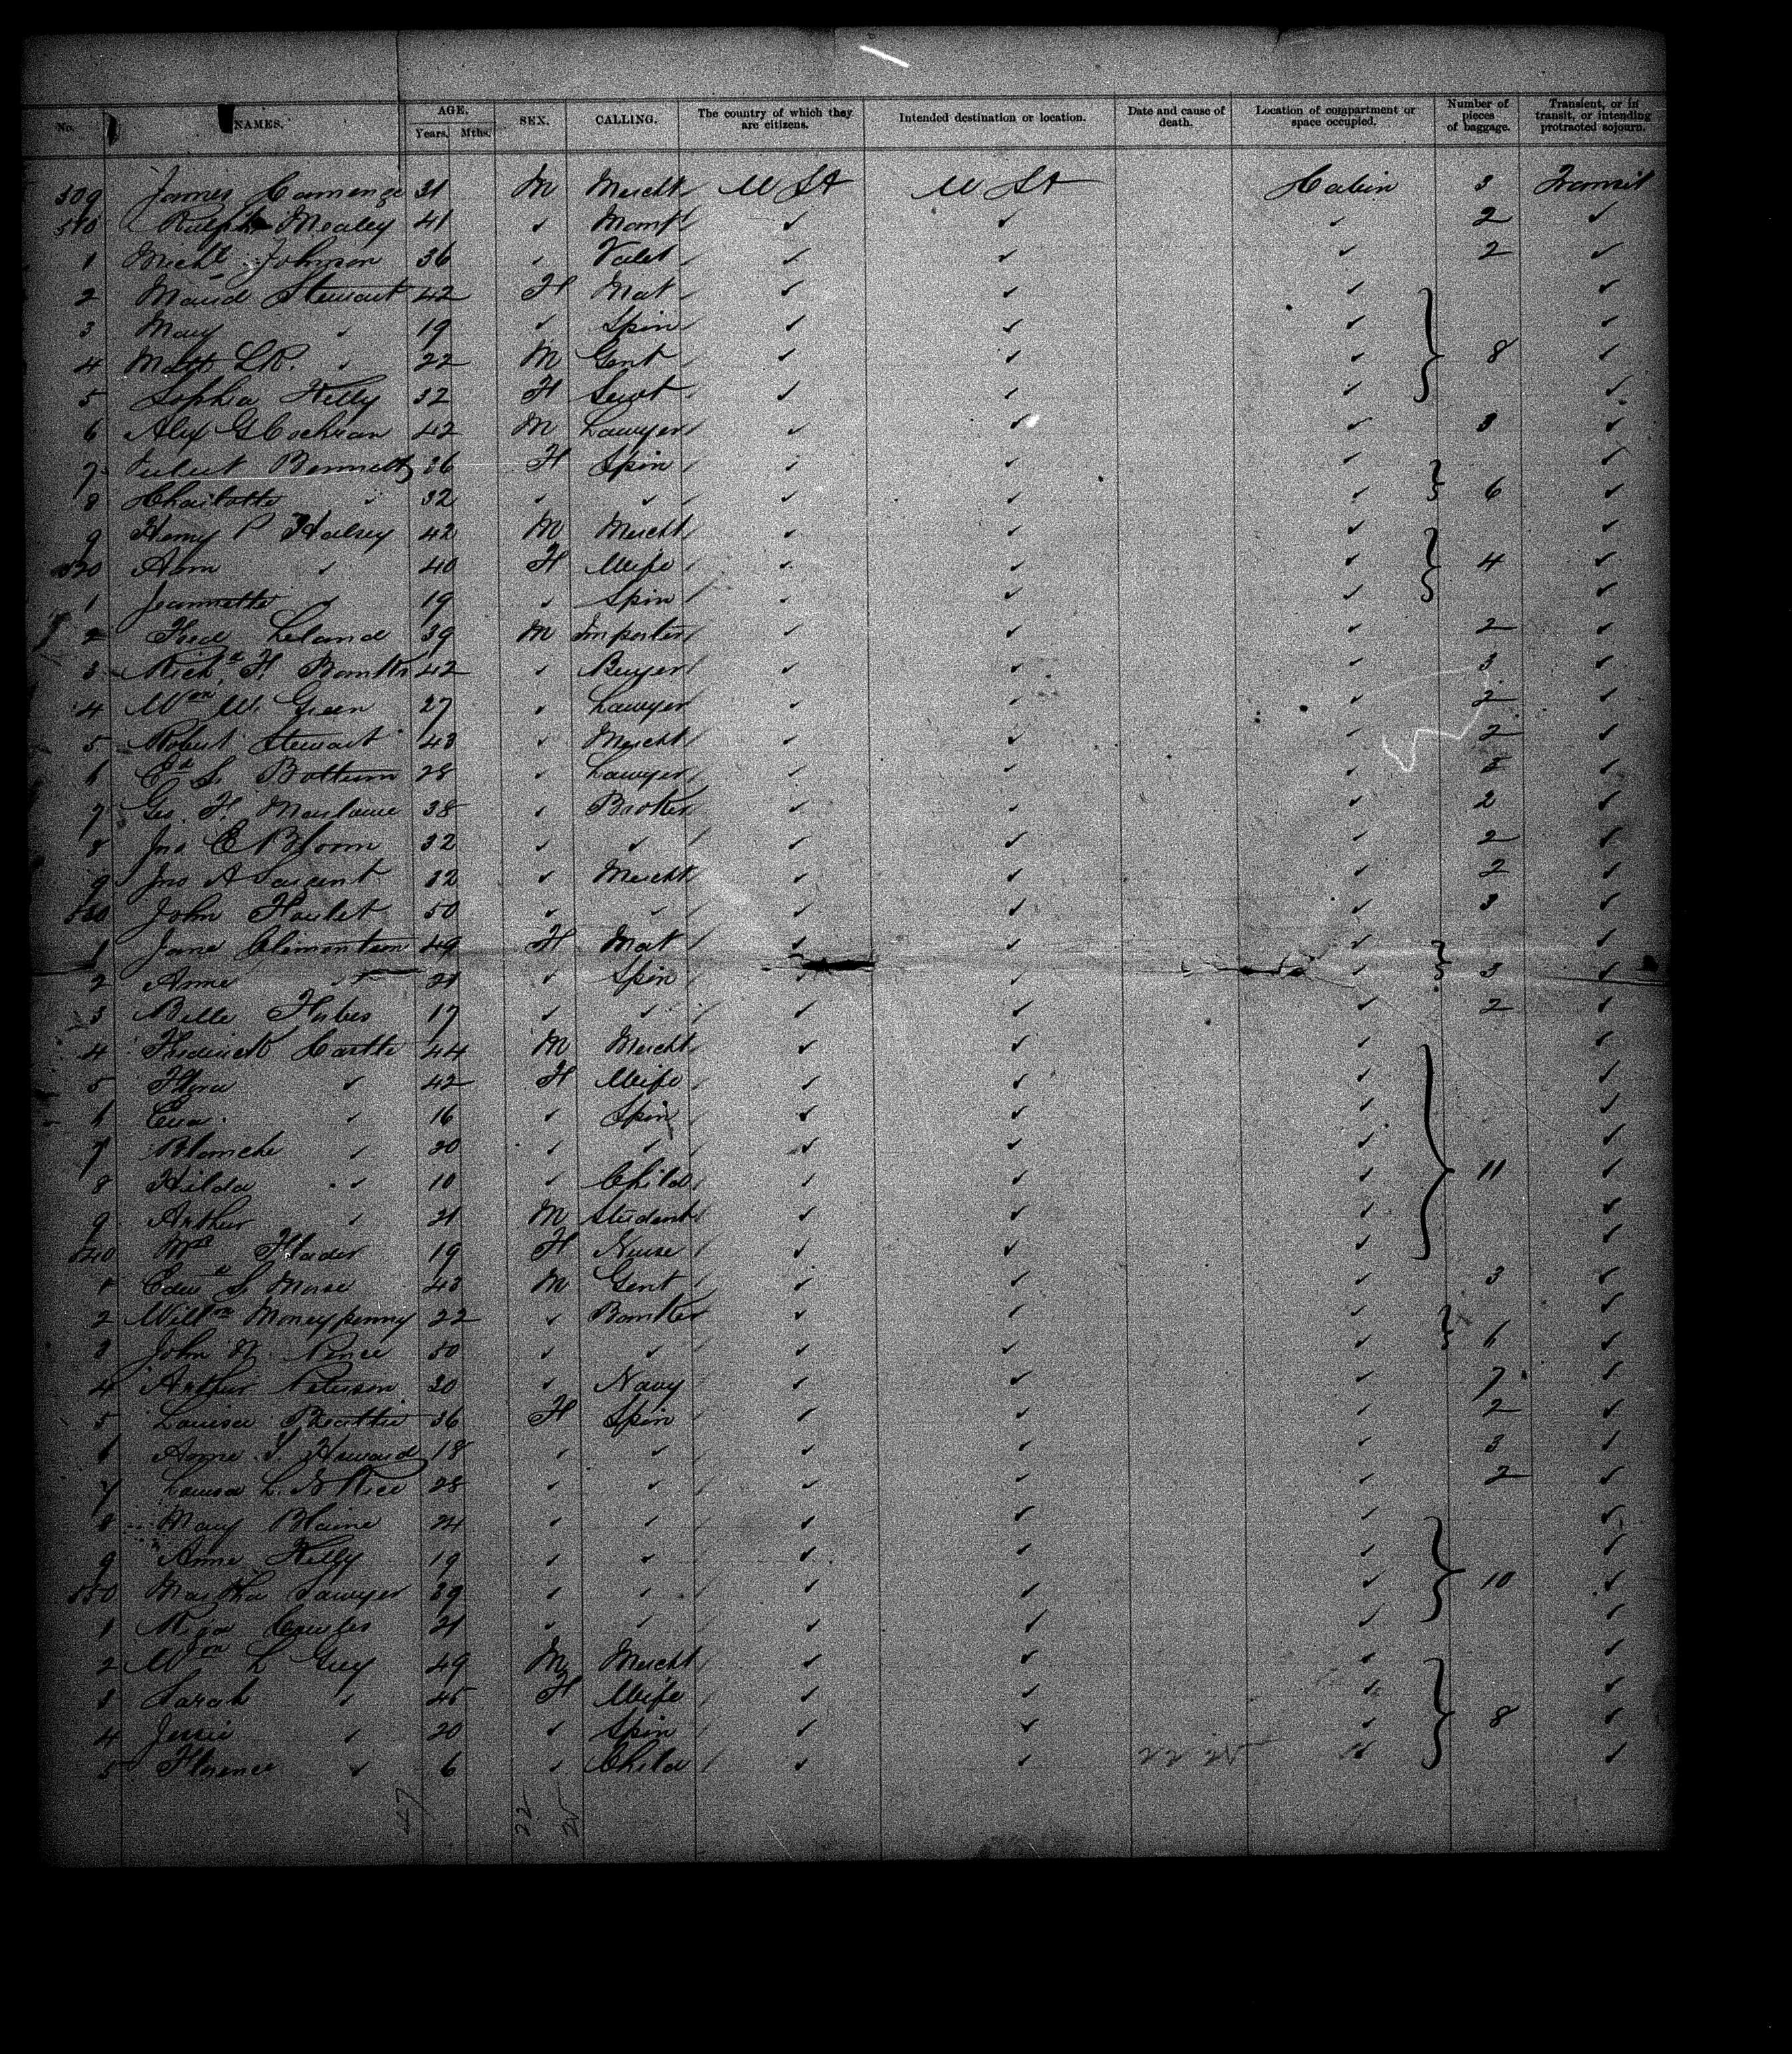 No. NAMES. AGE. Years. Mths. SEX. CALLING. The country of which they are citizens. Intended destination or location. Date and cause of death. Location of compartment or space occupied. Number of pieces of baggage. Transient, or in transit, or intending protracted sojourn.
509 James 31 M Mercht U St U St Cabin 3 Transit
510 Ralph Mealey 41 ✓ Manf ✓ ✓ ✓ 2 ✓
1 Michl Johnson 36 ✓ Valet ✓ ✓ ✓ 2 ✓
2 Maud Stewart 42 F Mat ✓ ✓ ✓ ✓
3 May ✓ 19 ✓ Spin ✓ ✓ ✓ ✓
4 Matt LR. ✓ 22 M Gent ✓ ✓ ✓ 8 ✓
5 Sophia Kelly 32 F Servt ✓ ✓ ✓ ✓
6 Alex G Cochran 42 M Lawyer ✓ ✓ ✓ 3 ✓
7 Bennett 36 F Spin ✓ ✓ ✓ ✓
8 Charlotte ✓ 32 ✓ ✓ ✓ ✓ ✓ 6 ✓
9 Henry P Halsey 42 M Mercht ✓ ✓ ✓ ✓
520 Ann ✓ 40 F Wife ✓ ✓ ✓ 4 ✓
1 Jeannette ✓ 19 ✓ Spin ✓ ✓ ✓ ✓
2 Fred Leland 39 M Importer ✓ ✓ ✓ 2 ✓
3 Richd H. Banks 42 ✓ Buyer ✓ ✓ ✓ 3 ✓
4 Wm W. Green 27 ✓ Lawyer ✓ ✓ ✓ 2 ✓
5 Robert Stewart 43 ✓ Mercht ✓ ✓ ✓ 2 ✓
6 Ed S. Bottum 28 ✓ Lawyer ✓ ✓ ✓ ✓
7 Geo. F. Marlowe 38 ✓ Broker ✓ ✓ ✓ 2 ✓
8 Jno E Bloom 32 ✓ ✓ ✓ ✓ ✓ 2 ✓
9 Jno A Sargent 32 ✓ Mercht ✓ ✓ ✓ 2 ✓
530 John Haulet 50 ✓ ✓ ✓ ✓ ✓ 3 ✓
1 Jane Climontson 49 F Mat ✓ ✓ ✓ ✓
2 Anne ✓ 21 ✓ Spin ✓ ✓ ✓ 3 ✓
3 Belle 17 ✓ ✓ ✓ ✓ ✓ 2 ✓
4 Frederick Castle 44 M Mercht ✓ ✓ ✓ ✓
5 Flora ✓ 42 F Wife ✓ ✓ ✓ ✓
6 Eva ✓ 16 ✓ Spin ✓ ✓ ✓ ✓
7 Blanche ✓ 20 ✓ ✓ ✓ ✓ ✓ ✓
8 Hilda ✓ 10 ✓ Child ✓ ✓ ✓ 11 ✓
9 Arthur ✓ 21 M Student ✓ ✓ ✓ ✓
540 19 F Nurse ✓ ✓ ✓ ✓
1 Edwd S. Morse 43 M Gent ✓ ✓ ✓ 3 ✓
2 Willm Moneypenny 22 ✓ Banker ✓ ✓ ✓ ✓
3 John 50 ✓ ✓ ✓ ✓ ✓ 6 ✓
4 Arthur Peterson 30 ✓ Navy ✓ ✓ ✓ 7 ✓
5 Louisa Beattie 36 F Spin ✓ ✓ ✓ 2 ✓
6 Anne 18 ✓ ✓ ✓ ✓ ✓ 3 ✓
7 Louisa L. 28 ✓ ✓ ✓ ✓ ✓ 2 ✓
8 Mary Blaine 24 ✓ ✓ ✓ ✓ ✓ ✓
9 Anne Kelly 19 ✓ ✓ ✓ ✓ ✓ ✓
550 Martha Sawyer 39 ✓ ✓ ✓ ✓ ✓ 10 ✓
1 21 ✓ ✓ ✓ ✓ ✓ ✓
2 Wm L Guy 49 M Mercht ✓ ✓ ✓ ✓
3 Sarah ✓ 45 F Wife ✓ ✓ ✓ ✓
4 Jessie ✓ 20 ✓ Spin ✓ ✓ ✓ 8 ✓
5 Florence ✓ 6 ✓ Child ✓ ✓ 22 25 ✓ ✓
47 22 25